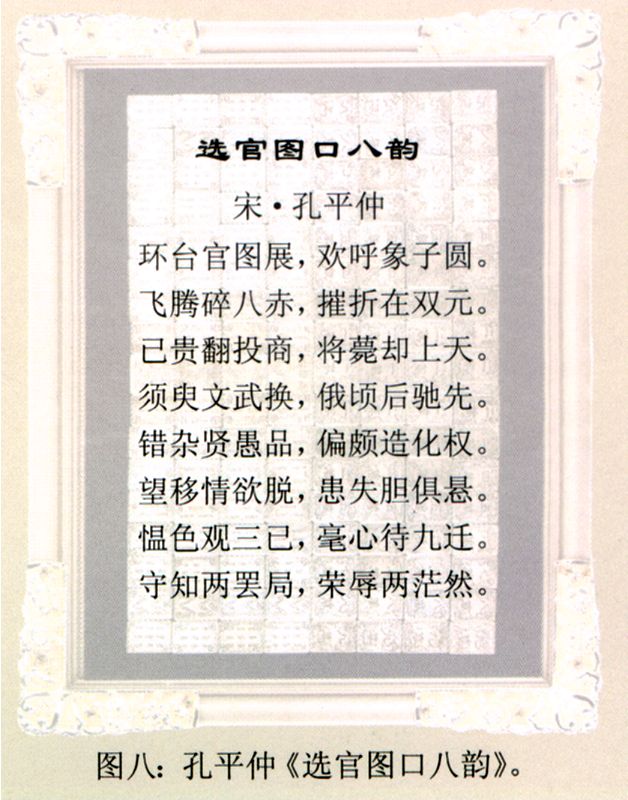 选官图口八韵
宋·孔平仲
环台官图展，欢呼象子圆。
飞腾碎八赤，摧折在双元。
已贵翻投商，将薨却上天。
须臾文武换，俄顷后驰先。
错杂贤愚品，偏颇造化权。
望移情欲脱，患失胆俱悬。
愠色观三已，毫心待九迁。
守知两罢局，荣辱两茫然。
图八：孔平仲《选官图口八韵》。